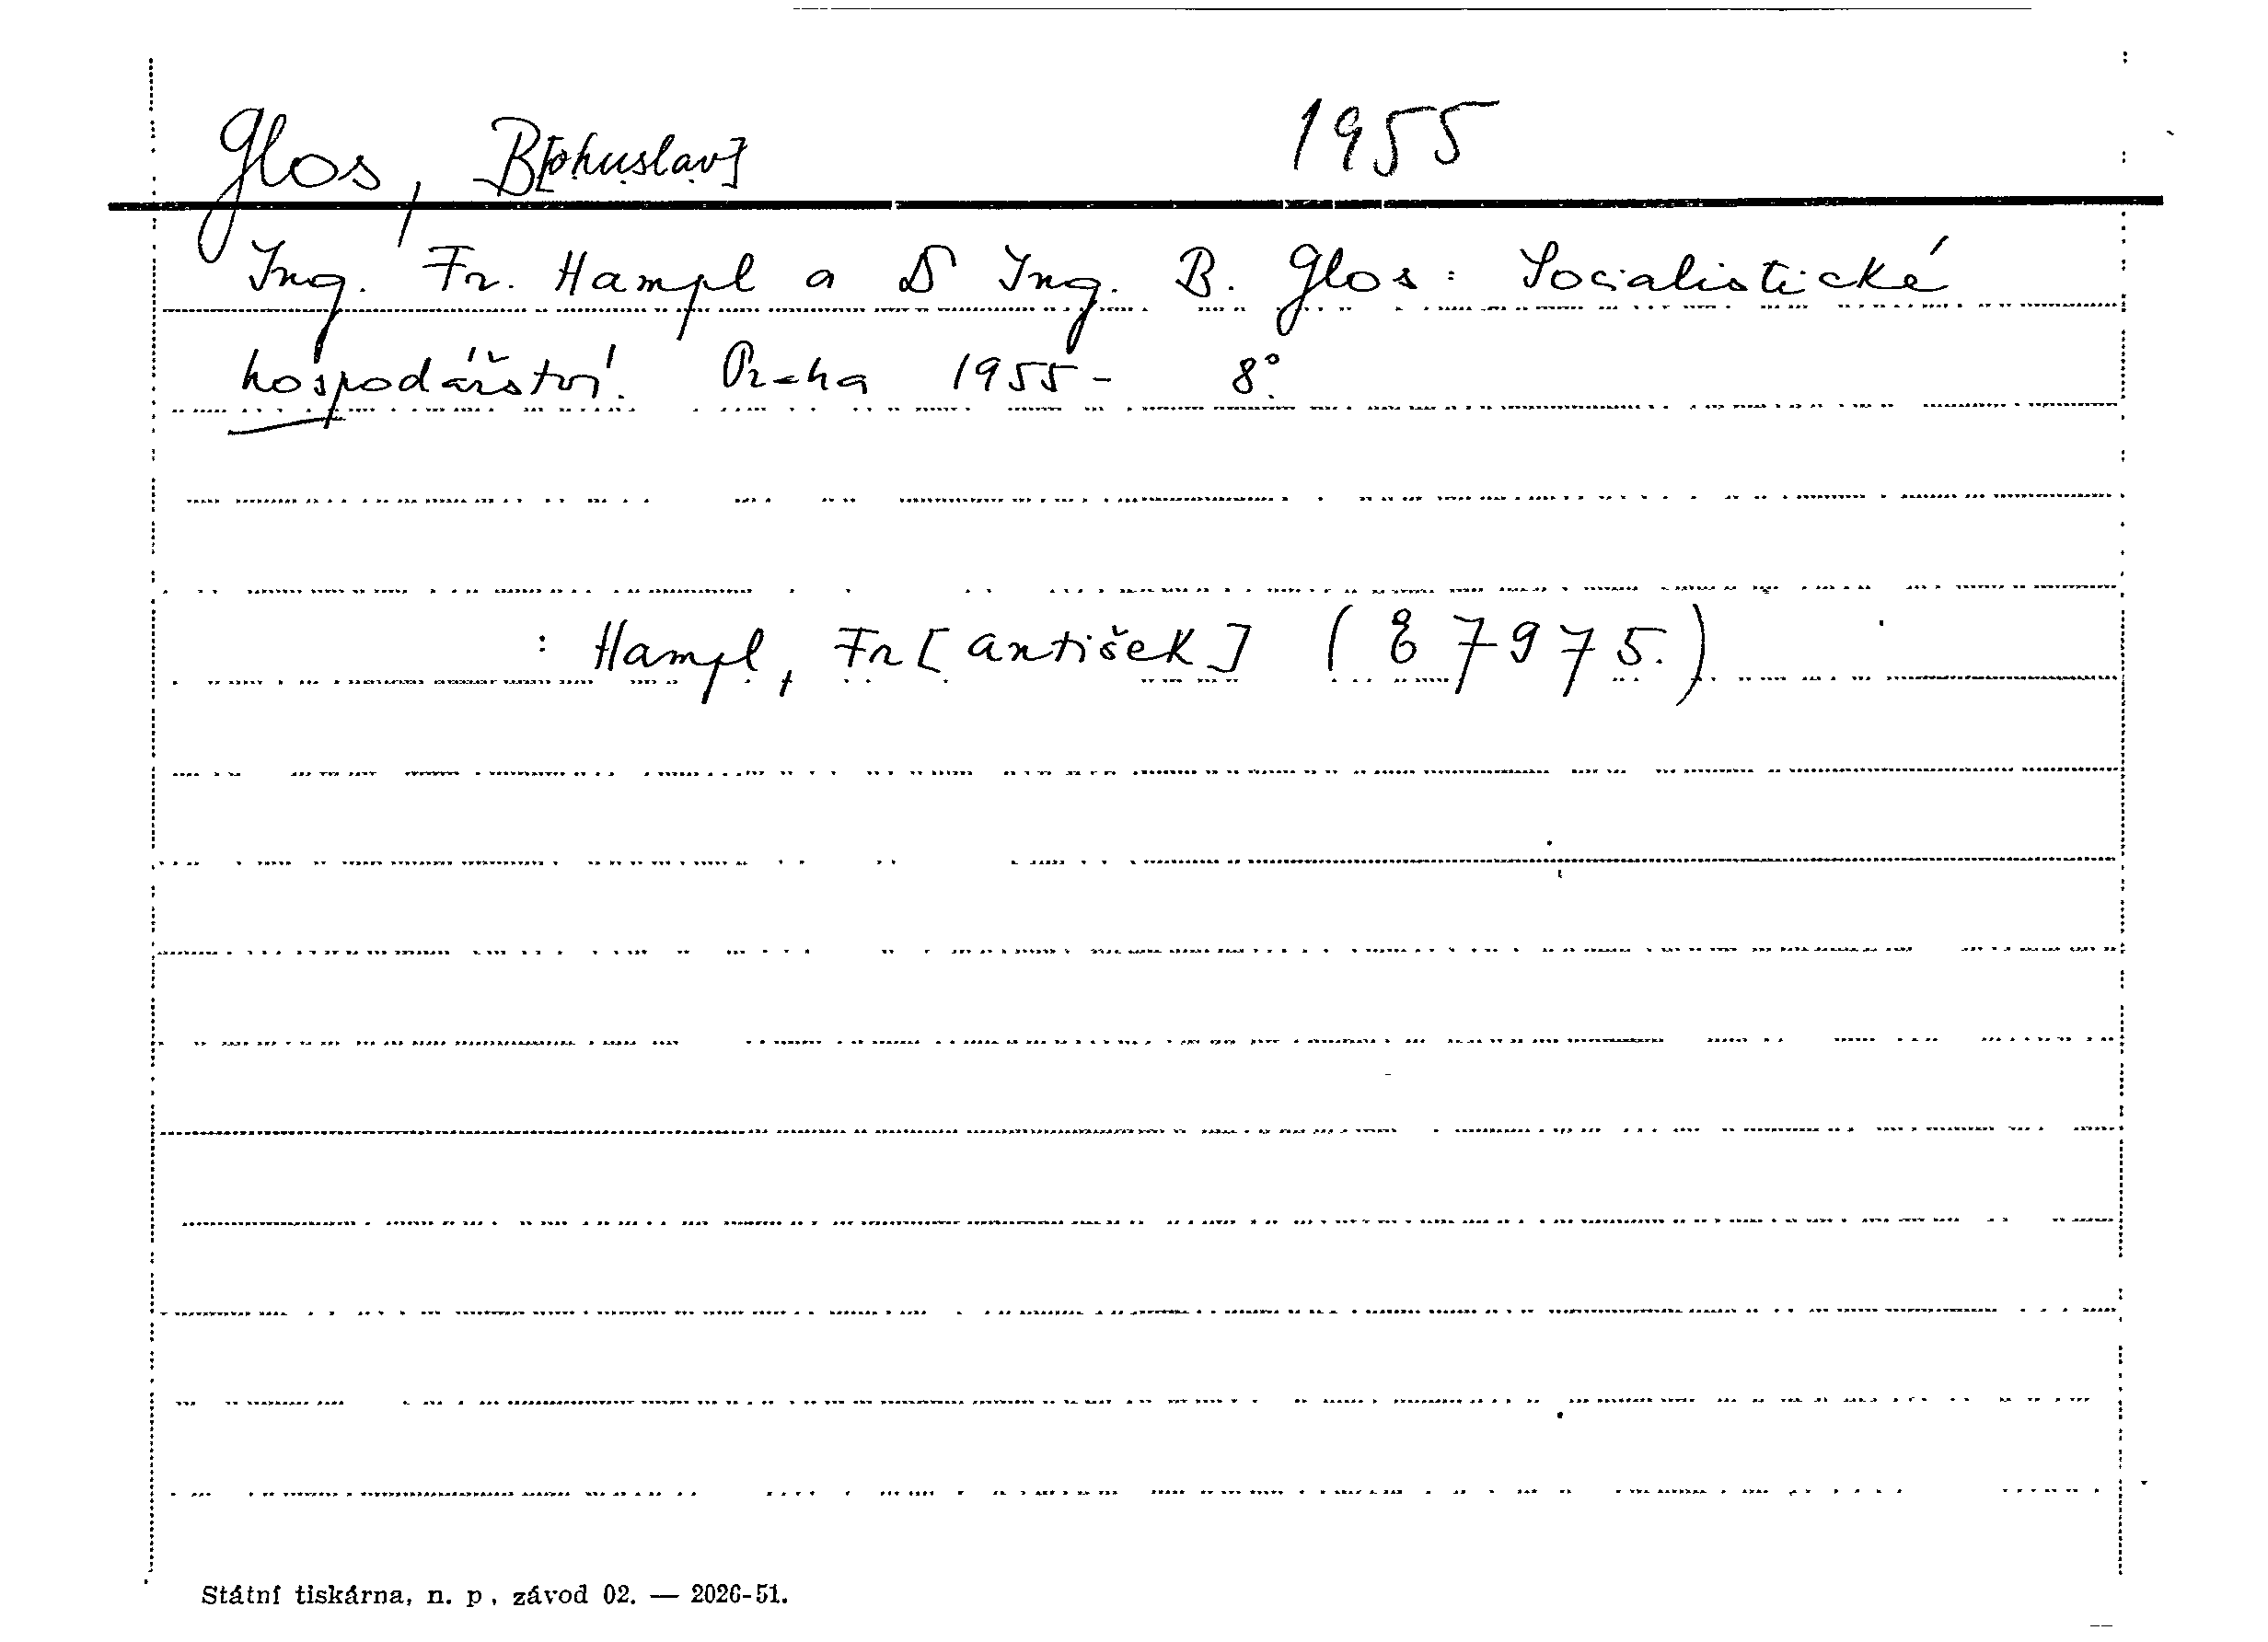 Glos, B[ohuslav] 1955
Ing. Fr. Hampl a D Ing. B. Glos: Socialistické
hospodářství. Praha 1955- 8°.
: Hampl, Fr[antišek] (87975.)
Státní tiskárna, n. p. závod 02. — 2026-51.